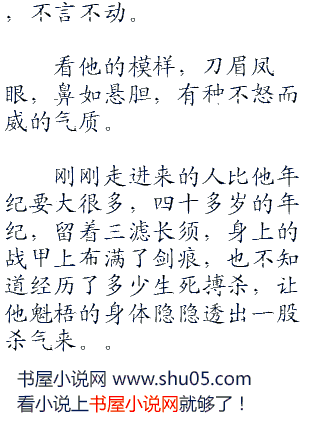 ，不言不动。
看他的模样，刀眉凤
眼，鼻如悬胆，有种不怒而
威的气质。
刚刚走进来的人比他年
纪要大很多，四十多岁的年
纪，留着三滤长须，身上的
战甲上布满了剑痕，也不知
道经历了多少生死搏杀，让
他魁梧的身体隐隐透出一股
杀气来。。
书屋小说网 www.shu05.com
看小说上书屋小说网就够了！